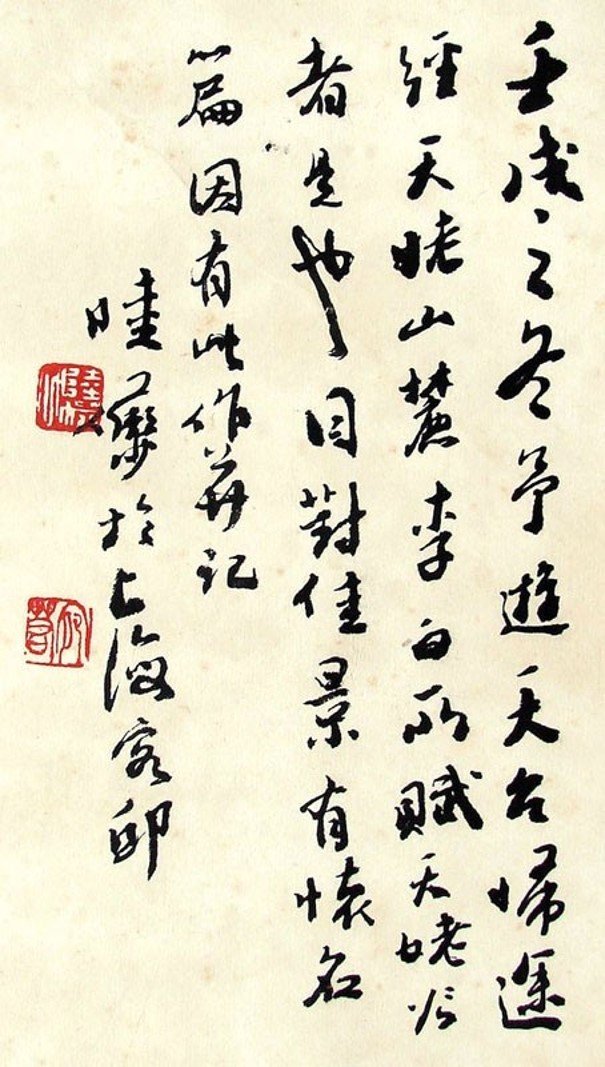 壬戌之冬予遊天台歸途
經天姥山麓李白所賦天姥吟
者是也目對佳景有懷名
篇因有此作并記
於上海客邸